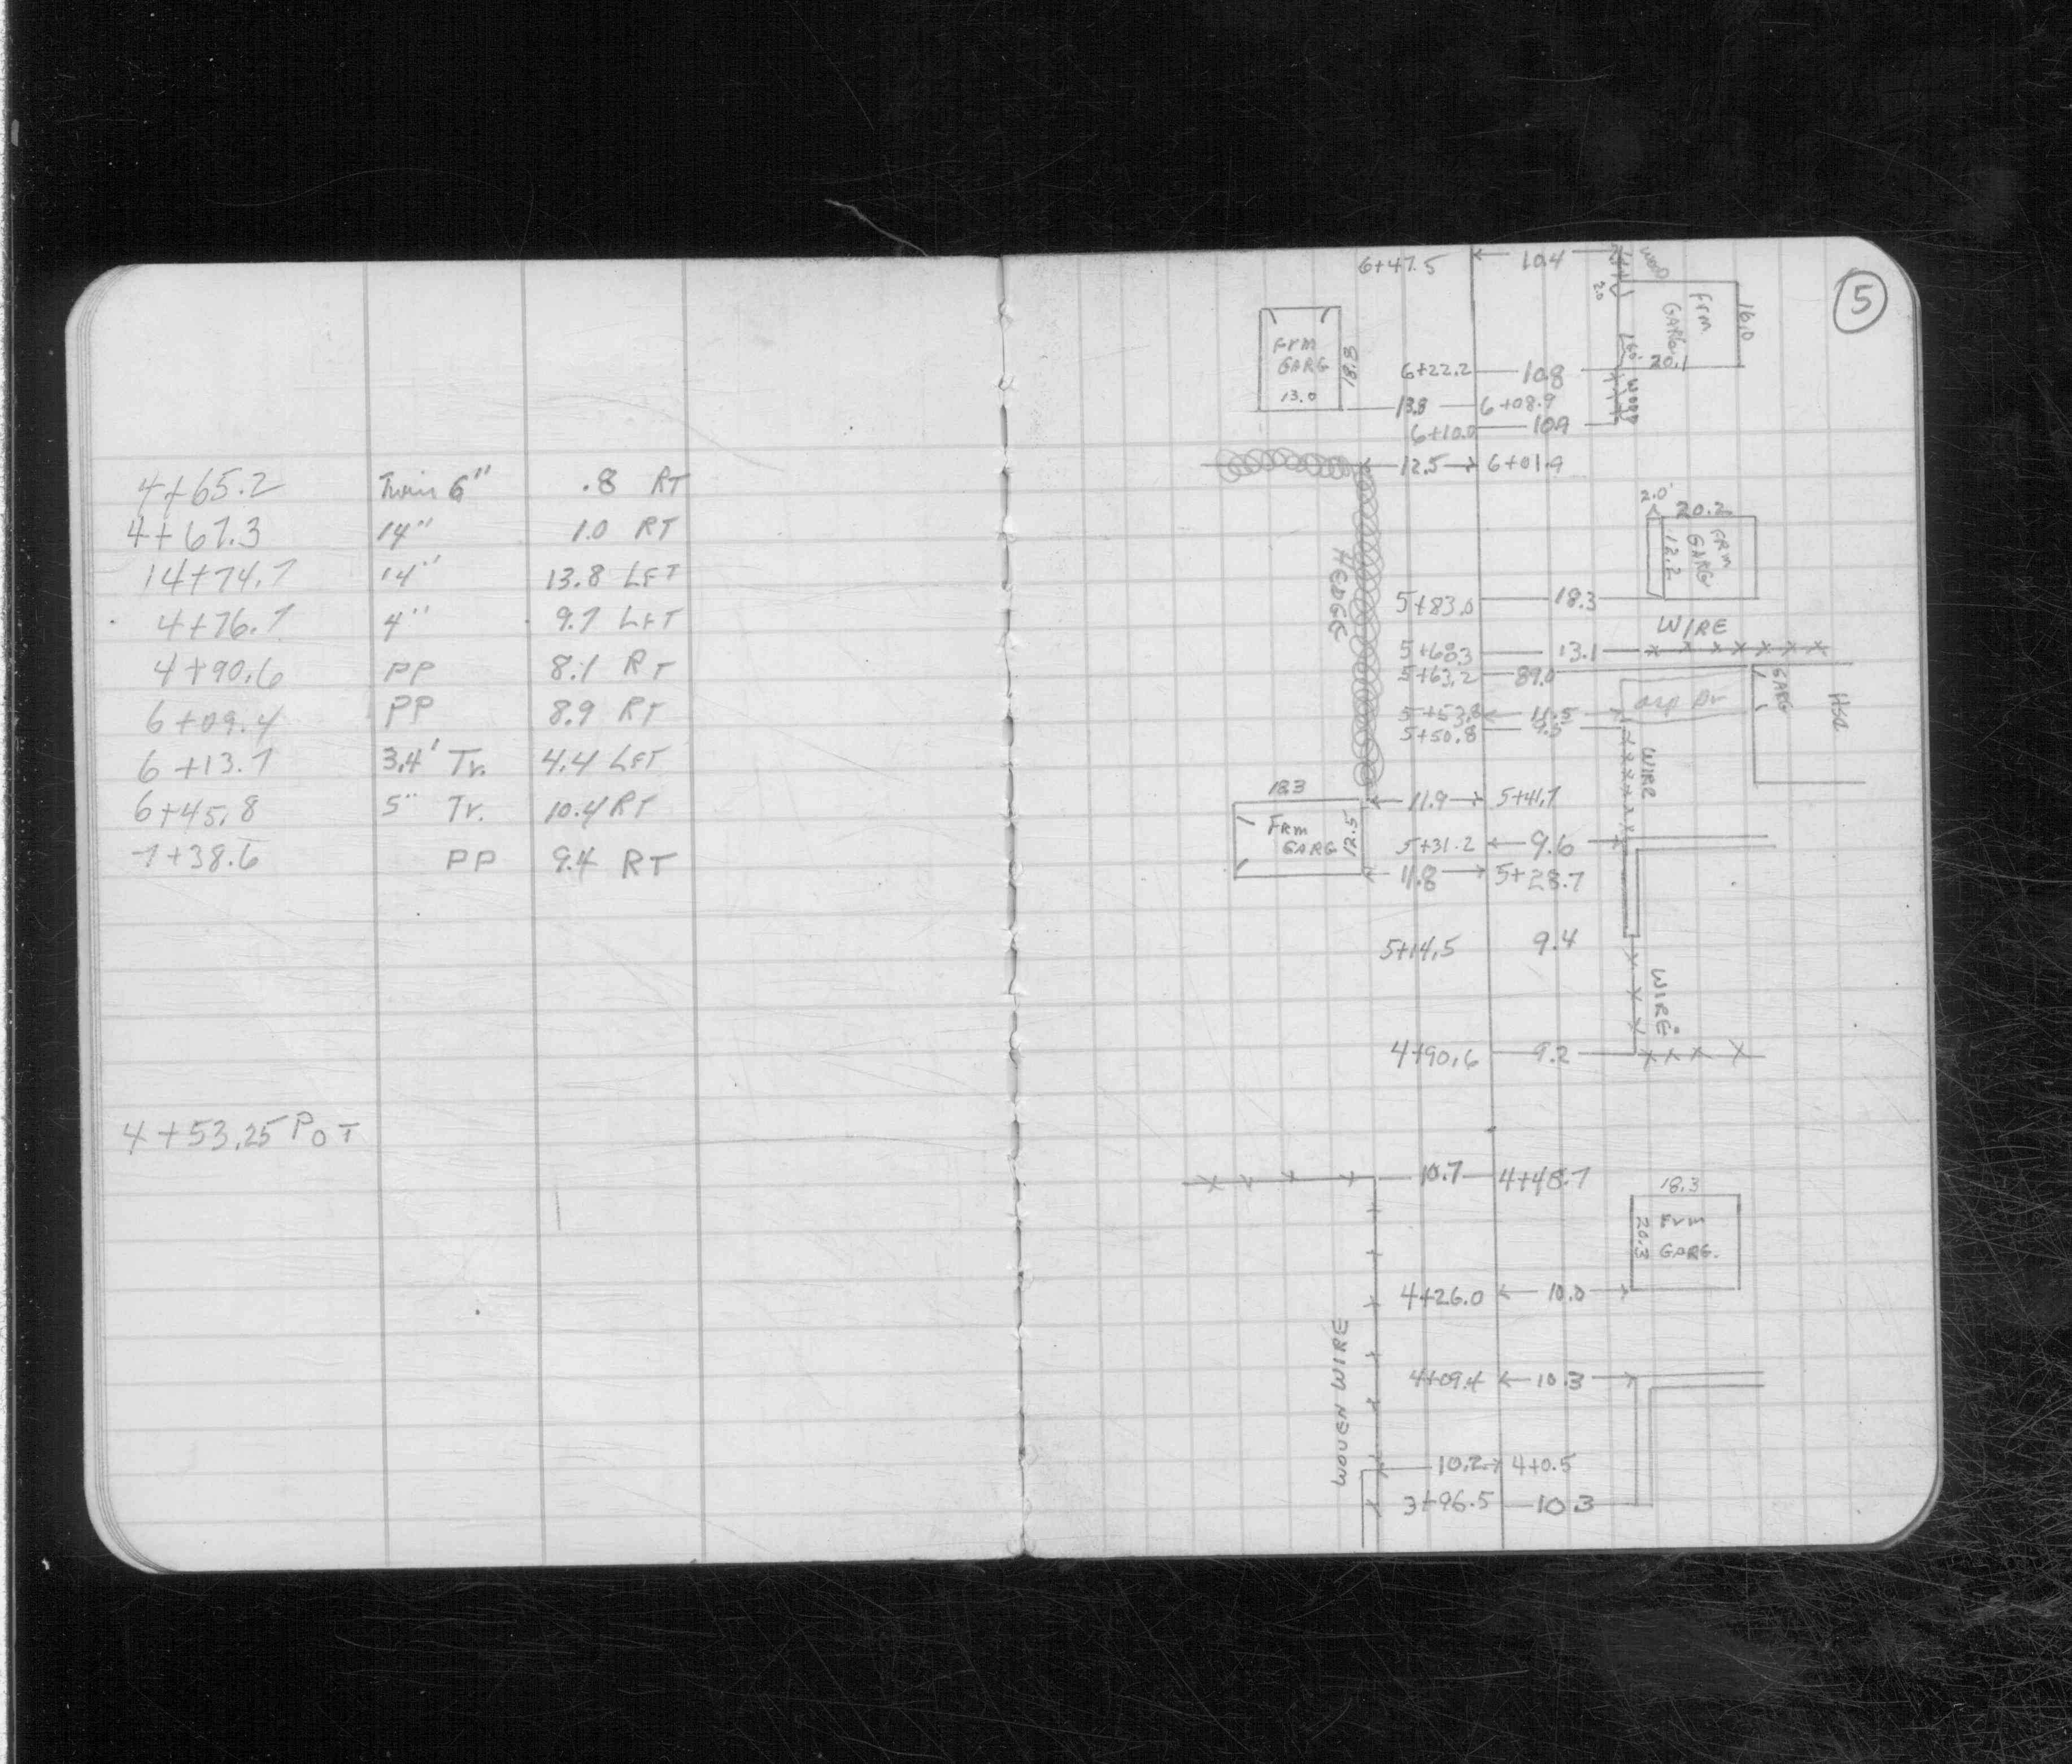 4+65.2 Twin 6" .8 RT
4+67.3 14" 1.0 RT
14+74.7 14" 13.8 LFT
4+76.7 4" 9.7 LFT
4+90.6 PP 8.1 RT
6+09.4 PP 8.9 RT
6+13.7 3.4' Tr. 4.4 LFT
6+45.8 5" Tr. 10.4 RT
7+38.6 PP 9.4 RT
4+53.25 POT
5
6+47.5 10.4
WOOD
2.0
Frm GARG. 16.0
20.1
Frm GARG 18.8
13.0
6+22.2 10.8
WOOD
13.8 6+08.9
6+10.0 10.9
12.5 6+01.9
HEDGE
2.0 20.2
FRM GARG 12.2
5+83.0 18.3
WIRE
5+68.3 13.1
5+63.2 89.0
GARG
HSE
asp Dr
5+53.8 11.5
5+50.8 9.5
WIRE
18.3
11.9 5+41.7
Frm GARG 12.5
5+31.2 9.6
11.8 5+28.7
5+14.5 9.4
WIRE
4+90.6 9.2
10.7 4+48.7
18.3
20.3 Frm GARG.
4+26.0 10.0
WOVEN WIRE
4+09.4 10.3
10.2 4+0.5
3+96.5 10.3